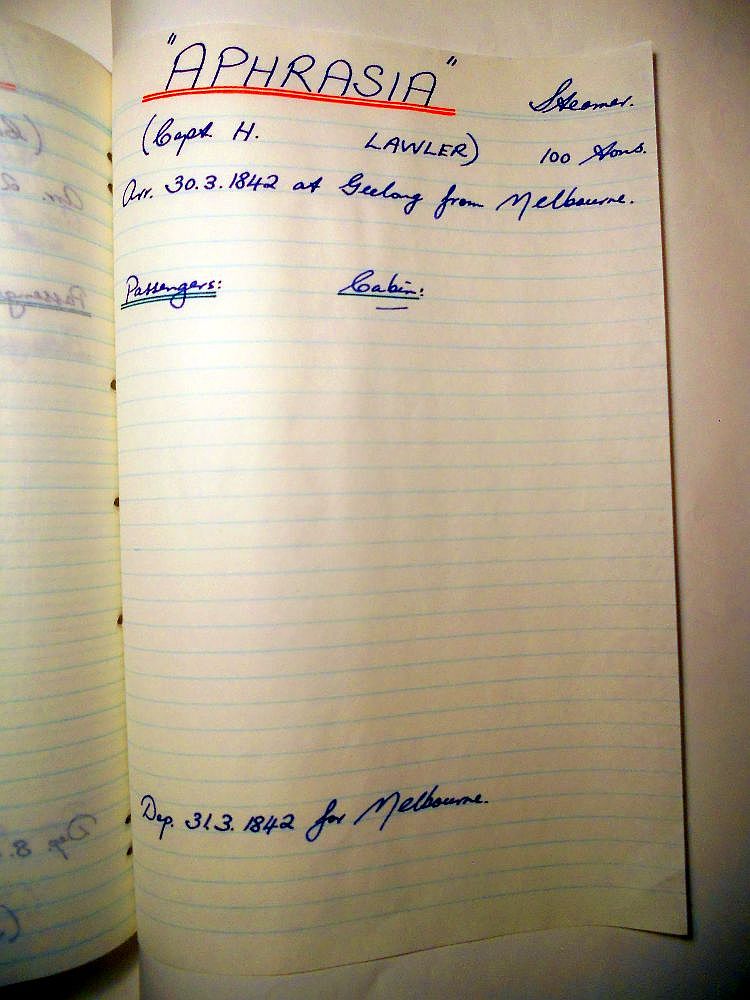 "APHRASIA" Steamer.
(Capt H. LAWLER) 100 Tons.
Arr. 30.3.1842 at Geelong from Melbourne.
Passengers: Cabin:
Dep. 31.3.1842 for Melbourne.